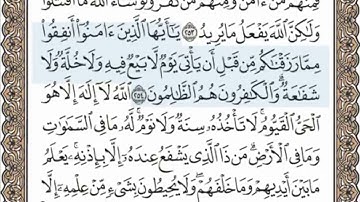 فَمِنْهُم مَّنْ ءَامَنَ وَمِنْهُم مَّن كَفَرَ وَلَوْ شَآءَ ٱللَّهُ مَا ٱقْتَتَلُوا۟
وَلَٰكِنَّ ٱللَّهَ يَفْعَلُ مَا يُرِيدُ ٢٥٣ يَٰٓأَيُّهَا ٱلَّذِينَ ءَامَنُوٓا۟ أَنفِقُوا۟
مِمَّا رَزَقْنَٰكُم مِّن قَبْلِ أَن يَأْتِىَ يَوْمٌ لَّا بَيْعٌ فِيهِ وَلَا خُلَّةٌ وَلَا
شَفَٰعَةٌ ۗ وَٱلْكَٰفِرُونَ هُمُ ٱلظَّٰلِمُونَ ٢٥٤ ٱللَّهُ لَآ إِلَٰهَ إِلَّا هُوَ
ٱلْحَىُّ ٱلْقَيُّومُ ۚ لَا تَأْخُذُهُۥ سِنَةٌ وَلَا نَوْمٌ ۚ لَّهُۥ مَا فِى ٱلسَّمَٰوَٰتِ
وَمَا فِى ٱلْأَرْضِ ۗ مَن ذَا ٱلَّذِى يَشْفَعُ عِندَهُۥٓ إِلَّا بِإِذْنِهِۦ ۚ يَعْلَمُ
مَا بَيْنَ أَيْدِيهِمْ وَمَا خَلْفَهُمْ ۖ وَلَا يُحِيطُونَ بِشَىْءٍ مِّنْ عِلْمِهِۦٓ إِلَّا